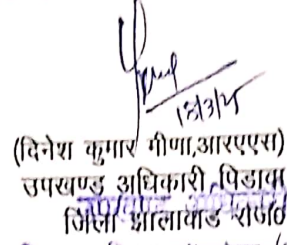 18/3/25
(दिनेश कुमार मीणा,आरएएस)
उपखण्ड अधिकारी पिडावा
जिला झालावाड राज0